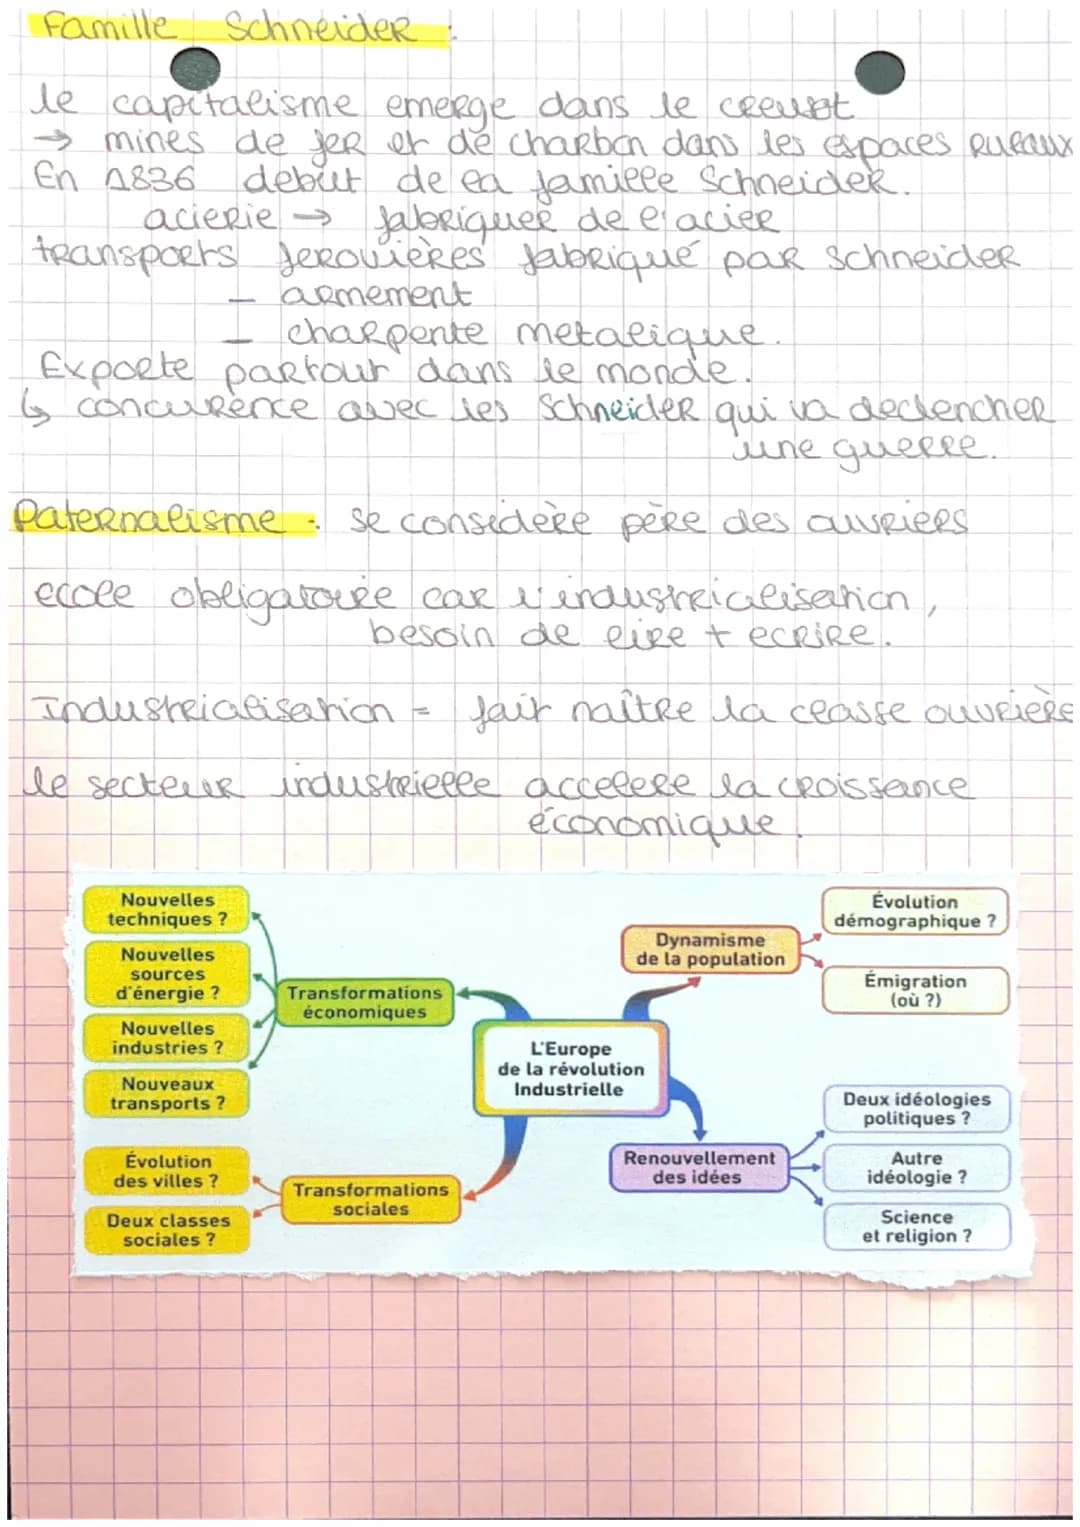 Famille Schneider :
le capitalisme emerge dans le creusot
→ mines de fer et de charbon dans les espaces ruraux
En 1836 debut de la famille Schneider.
acierie → fabriquer de l'acier
transports ferovières fabriqué par Schneider
– armement
– charpente metalique.
Exporte partout dans le monde.
↳ concurence avec les Schneider qui va declencher
une guerre.
Paternalisme : se considère père des ouvriers
ecole obligatoire car l'industrialisation,
besoin de lire + ecrire.
Industrialisation = fait naître la classe ouvrière
le secteur industrielle accelere la croissance
économique.
Nouvelles
techniques ?
Nouvelles
sources
d'énergie ?
Nouvelles
industries ?
Nouveaux
transports ?
Transformations
économiques
Évolution
des villes ?
Deux classes
sociales ?
Transformations
sociales
L'Europe
de la révolution
Industrielle
Dynamisme
de la population
Évolution
démographique ?
Émigration
(où ?)
Renouvellement
des idées
Deux idéologies
politiques ?
Autre
idéologie ?
Science
et religion ?